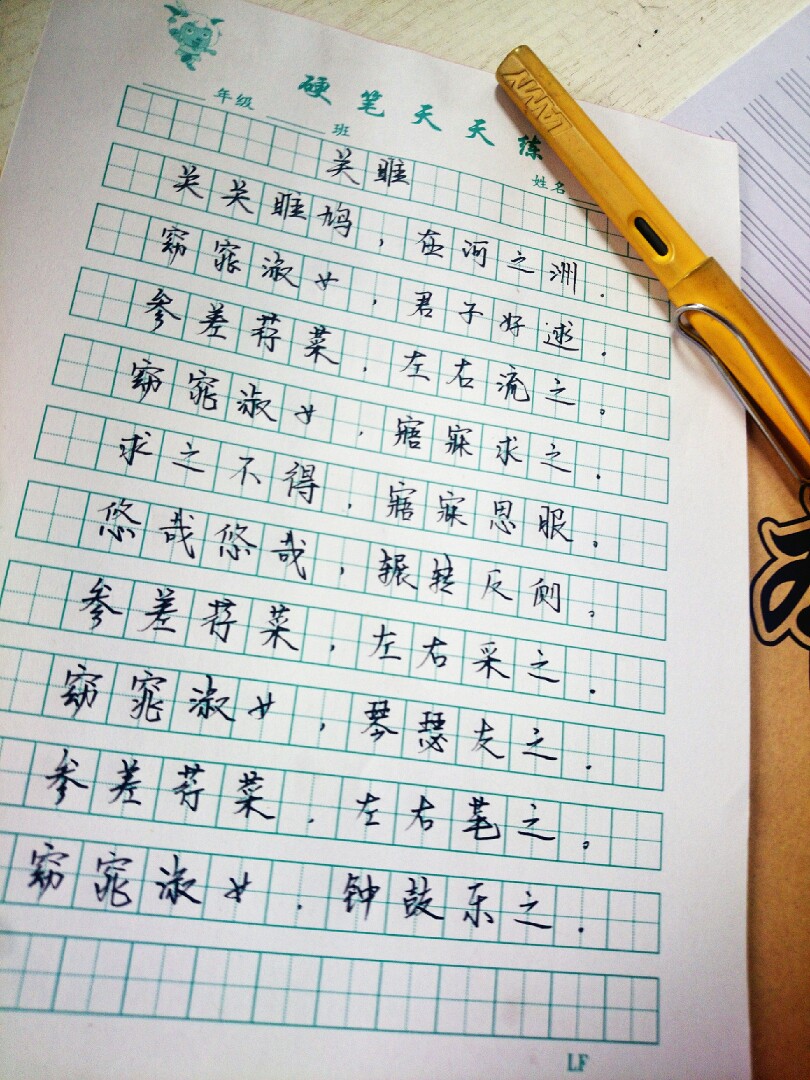 硬笔天天练
年级 班
姓名
关雎
关关雎鸠，在河之洲。
窈窕淑女，君子好逑。
参差荇菜，左右流之。
窈窕淑女，寤寐求之。
求之不得，寤寐思服。
悠哉悠哉，辗转反侧。
参差荇菜，左右采之。
窈窕淑女，琴瑟友之。
参差荇菜，左右芼之。
窈窕淑女，钟鼓乐之。
LF
LAMY